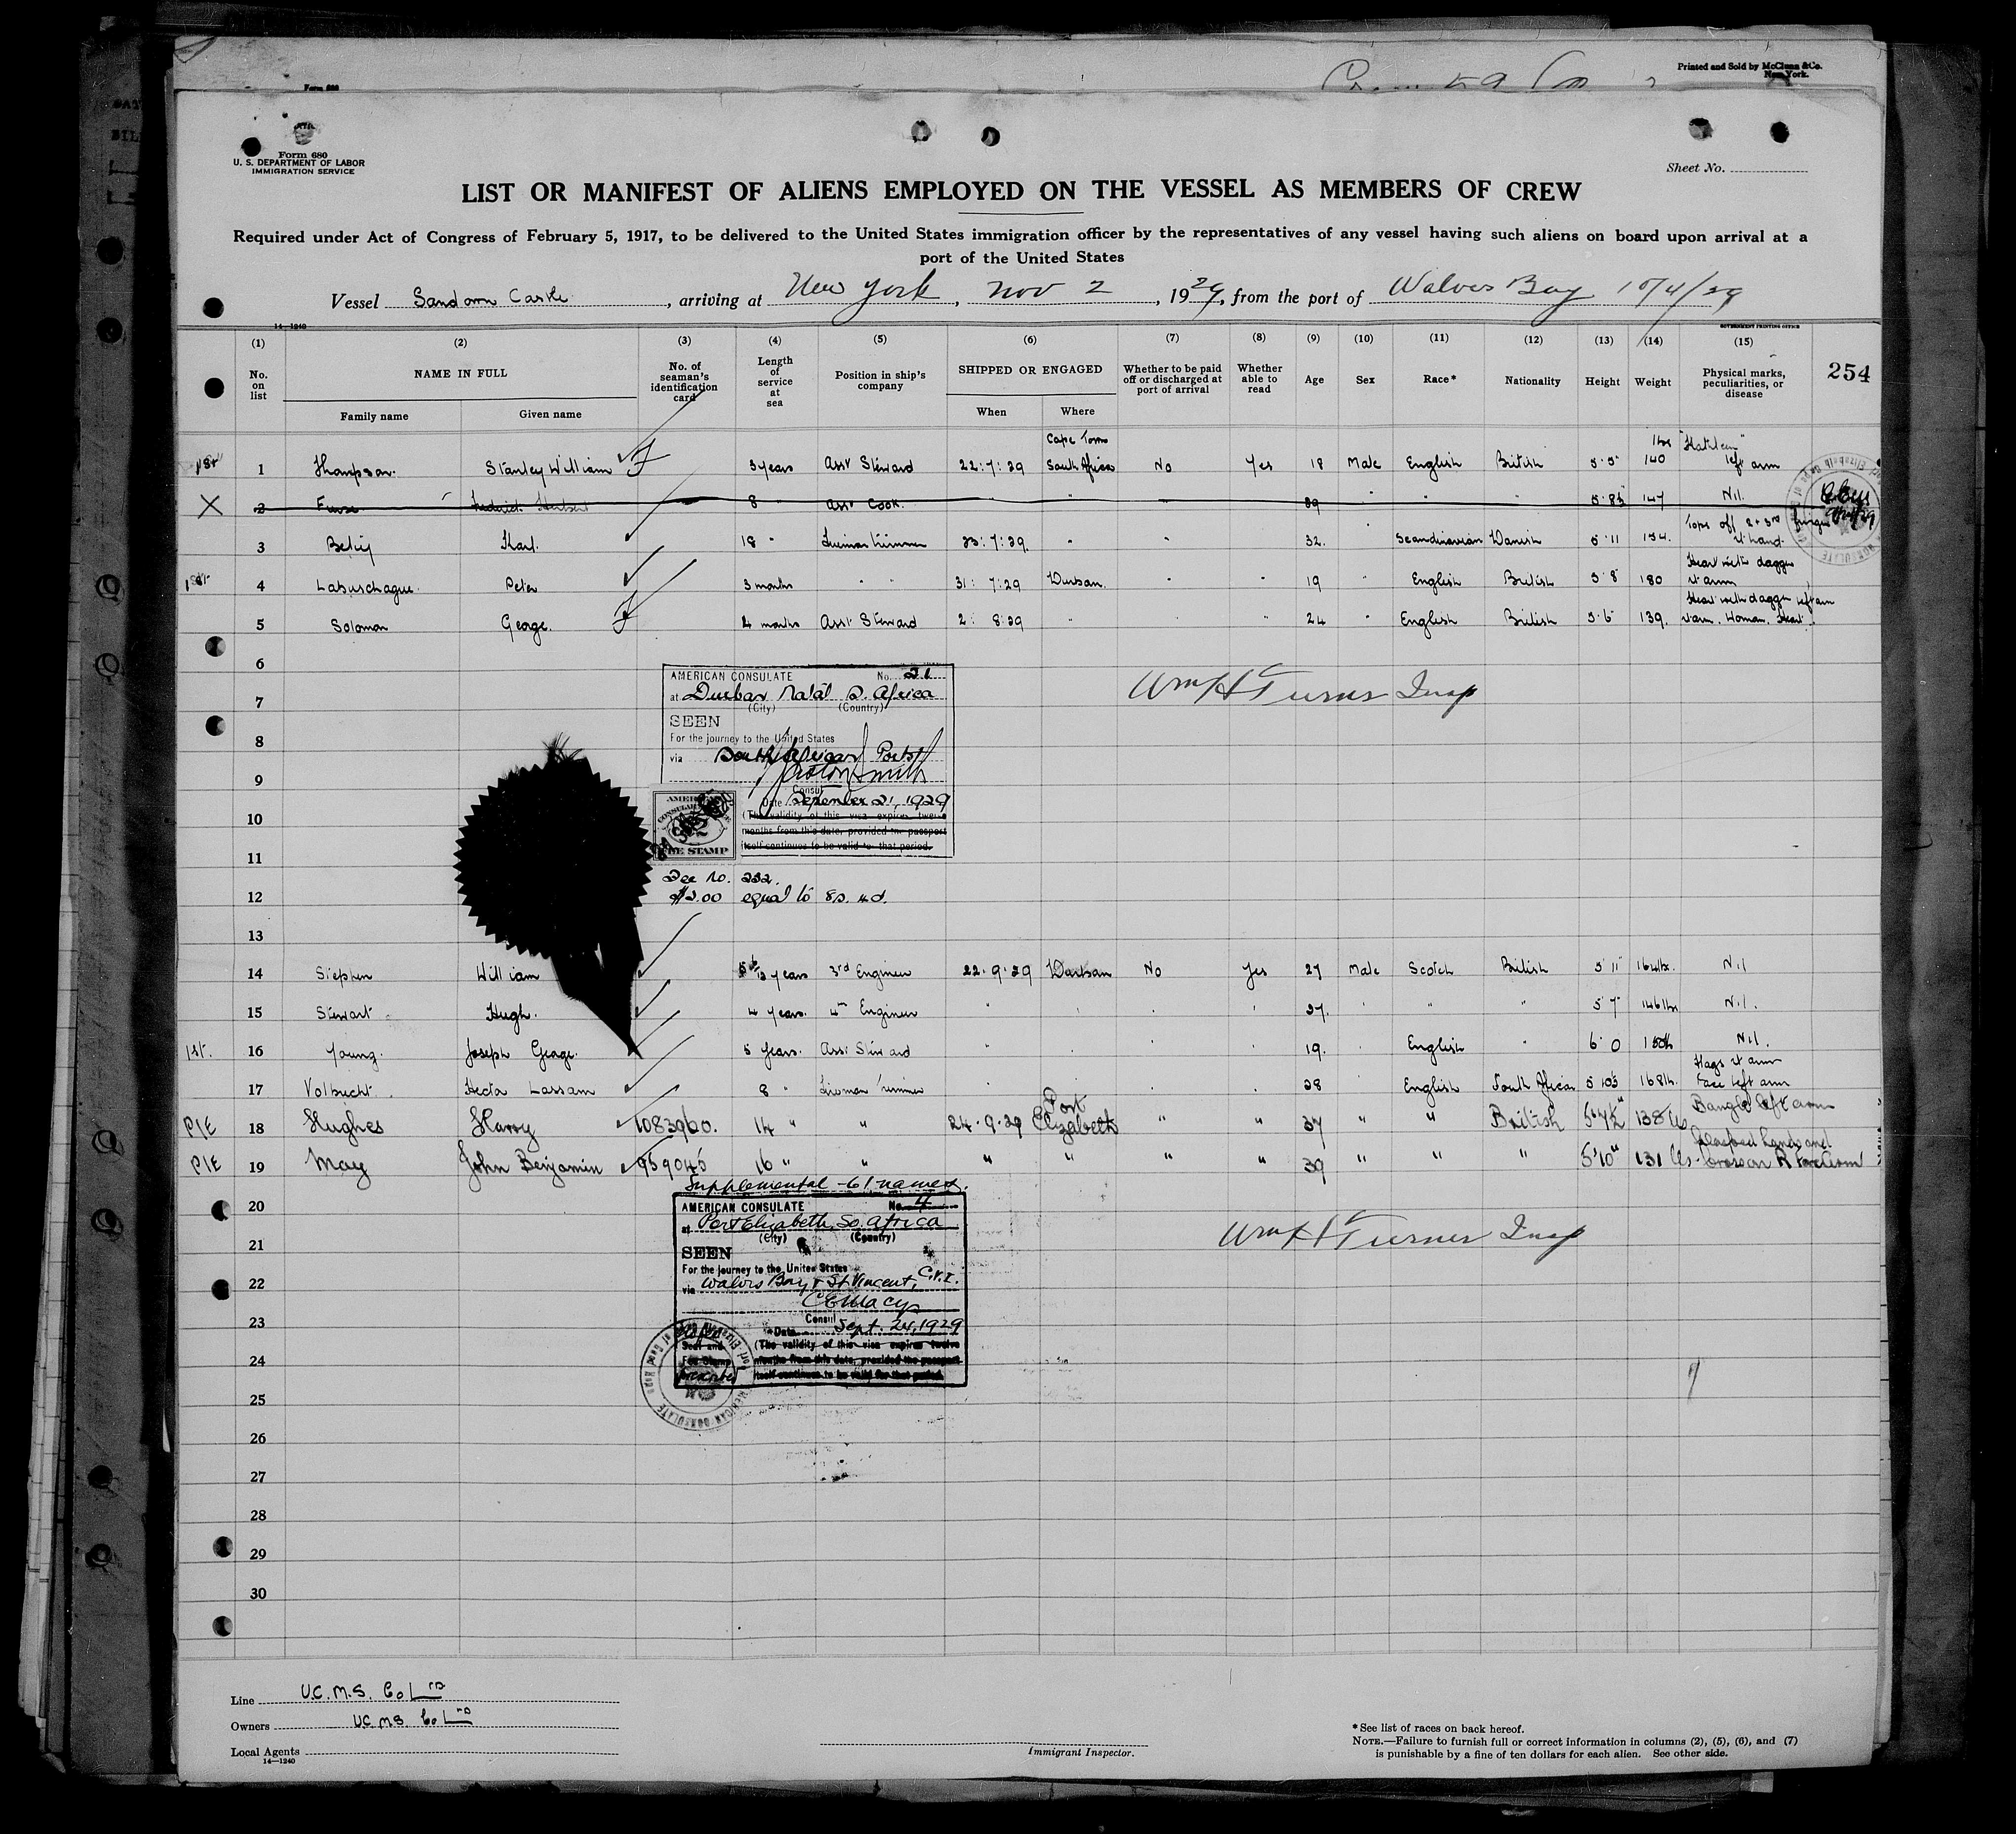 Printed and Sold by McClunn & Co.
New York.
Form 680
Form 680
U. S. DEPARTMENT OF LABOR
IMMIGRATION SERVICE
Sheet No.
LIST OR MANIFEST OF ALIENS EMPLOYED ON THE VESSEL AS MEMBERS OF CREW
Required under Act of Congress of February 5, 1917, to be delivered to the United States immigration officer by the representatives of any vessel having such aliens on board upon arrival at a
port of the United States
Vessel Sandown Castle, arriving at New York, Nov 2, 1929, from the port of Walvis Bay 10/4/29
14—1240
GOVERNMENT PRINTING OFFICE
(1) (2) (3) (4) (5) (6) (7) (8) (9) (10) (11) (12) (13) (14) (15)
No. on list NAME IN FULL No. of seaman's identification card Length of service at sea Position in ship's company SHIPPED OR ENGAGED Whether to be paid off or discharged at port of arrival Whether able to read Age Sex Race* Nationality Height Weight Physical marks, peculiarities, or disease 254
Family name Given name When Where
1st 1 Thompson. Stanley William 3 years Asst Steward 22:7:29 Cape Town South Africa No Yes 18 Male English British 5·5" 140 lbs "Kathleen" left arm
X 2 Furse Frederick Herbert 8 " Asst Cook. " " 39 " " " 5·8½ 147 Nil.
3 Karl. 18 " Fireman Trimmer 23:7:29. " " " 32. " Scandinavian Danish 5·11 154. Tops off 2 + 3rd fingers rt hand.
1st 4 Labuschague. Peter 3 months " " 31:7:29 Durban. " " 19 " English British 5·8" 180 Heart with dagger rt arm
5 Solomon George. 4 months Asst Steward 2:8:29 " " " 24 " English British 5·6" 139. Heart with dagger left arm rt arm. Woman. Heart.
6
7
8
9
10
11
12
13
AMERICAN CONSULATE No. 21
at Durban Natal S. Africa
(City) (Country)
SEEN
For the journey to the United States
via South African Ports
Consul
Date September 21, 1929
(The validity of this visa expires twelve
months from this date, provided the passport
itself continues to be valid for that period.
AMERICAN
CONSULAR SERVICE
FEE STAMP
Fee No. 222.
$2.00 equal to 8s. 4d.
Wm H Turner Insp
14 Stephen William 3rd Engineer 22·9·29 Durban No Yes 27 Male Scotch British 5 11" 164 lbs. Nil
15 Stewart Hugh. 4 years. 4th Engineer " " " " 27. " " " 5 7" 146 lbs Nil.
1st. 16 Young. Joseph George. 5 years. Asst Steward " " " " 19. " English " 6·0 Nil.
17 Volbrecht. Hector Lassam 8 " Fireman Trimmer " " " " 28 English South African 5 10½ 168 lb. Flags rt arm Face left arm
P/E 18 Hughes Harry 1083960. 14 " " 24·9·29 Port Elizabeth " " 37 " " British 5'4½" 138 lbs Bangle left arm
P/E 19 May John Benjamin 959045 16 " " " " " " 39 " " " 5'10" 131 lbs Clasped hands and cross on R forearm
20
21
22
23
24
25
26
27
28
29
30
Supplemental - 61 names.
AMERICAN CONSULATE No. 4
at Port Elizabeth, So. Africa
(City) (Country)
SEEN
For the journey to the United States
via Walvis Bay + St Vincent, C.V.I.
C E Macy
Consul
Date Sept. 24, 1929
Seal and
Fee Stamp
(The validity of this visa expires twelve
months from this date, provided the passport
itself continues to be valid for that period.
AMERICAN CONSULATE
Wm H Turner Insp
Line U.C.M.S. Co Ltd
Owners U.C.M.S. Co Ltd
Local Agents
14—1240
Immigrant Inspector.
* See list of races on back hereof.
NOTE.—Failure to furnish full or correct information in columns (2), (5), (6), and (7)
is punishable by a fine of ten dollars for each alien. See other side.